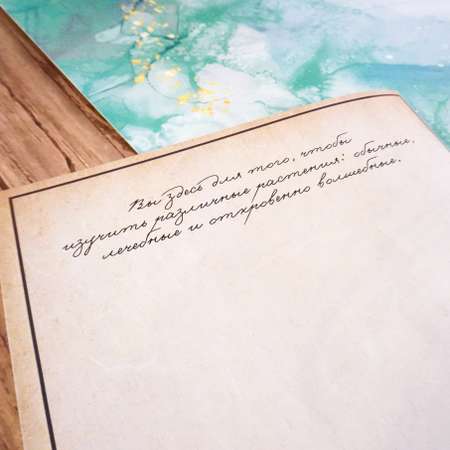 Вы здесь для того, чтобы
изучить различные растения: обычные,
лечебные и откровенно волшебные.